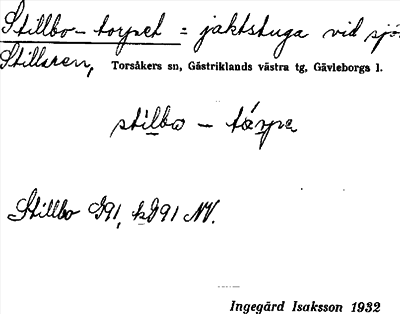 Stillbo-torpet = jaktstuga vid sjö
Stillaren, Torsåkers sn, Gästriklands västra tg, Gävleborgs l.
stilbω - tårpe
Stillbo G91, kG91 NV.
Ingegärd Isaksson 1932